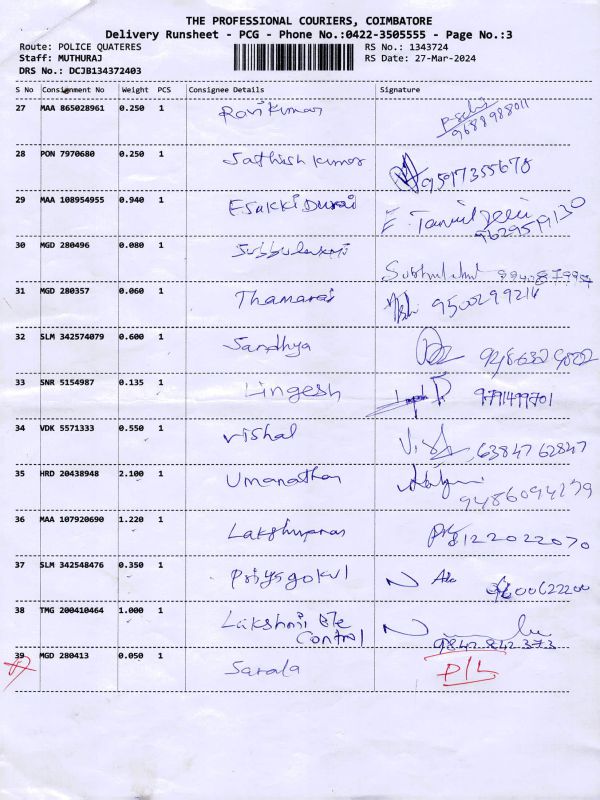 THE PROFESSIONAL COURIERS, COIMBATORE
Delivery Runsheet - PCG - Phone No.:0422-3505555 - Page No.:3
Route: POLICE QUATERES RS No.: 1343724
Staff: MUTHURAJ RS Date: 27-Mar-2024
DRS No.: DCJB134372403
S No Consignment No Weight PCS Consignee Details Signature
27 MAA 865028961 0.250 1 Ravikumar
9688988011
28 PON 7970680 0.250 1 Sathish kumar
9597355678
29 MAA 108954955 0.940 1 Esakki Durai
9629559130
30 MGD 280496 0.080 1 Subbulakmi
31 MGD 280357 0.060 1 Thamarai 9500299214
32 SLM 342574079 0.600 1 Sandhya
33 SNR 5154987 0.135 1 Lingesh 9791499701
34 VDK 5571333 0.550 1 vishal 6384762847
35 HRD 20438948 2.100 1 Umanathan
9486094279
36 MAA 107920690 1.220 1
8122022070
37 SLM 342548476 0.350 1 Priyagokul
38 TMG 200410464 1.000 1 Lakshmi Ele
Control
9842842373
39 MGD 280413 0.050 1 Sarala D/L